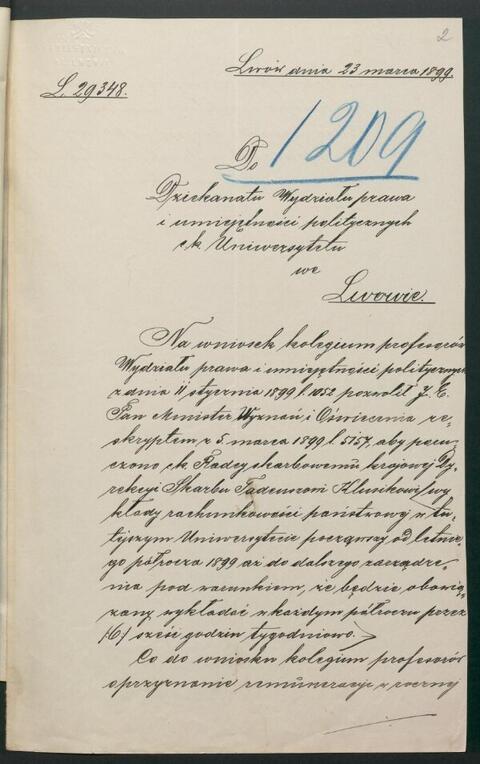 2
Lwów dnia 23 marca 1899.
L. 29348.
1209
Do
Dziekanatu Wydziału prawa
i umiejętności politycznych
ck. Uniwersytetu
we
Lwowie.
Na wniosek kolegium profesorów
Wydziału prawa i umiejętności politycznych
z dnia 11 stycznia 1899 l. 1052 pozwolił J. E.
Pan Minister Wyznań i Oświecenia re-
skryptem z 5. marca 1899 l. 5757, aby poru-
czono ck. Radcy skarbowemu krajowej Dy-
rekcyi Skarbu Tadeuszowi Klusikowi wy
kłady rachunkowości państwowej w tu-
tejszym Uniwersytecie począwszy od letnie-
go półrocza 1899 aż do dalszego zarządze-
nia pod warunkiem, że będzie obowią-
zany wykładać w każdym półroczu przez
/6/ sześć godzin tygodniowo.
Co do wniosku kolegium profesorów
o przyznanie remuneracyi w rocznej